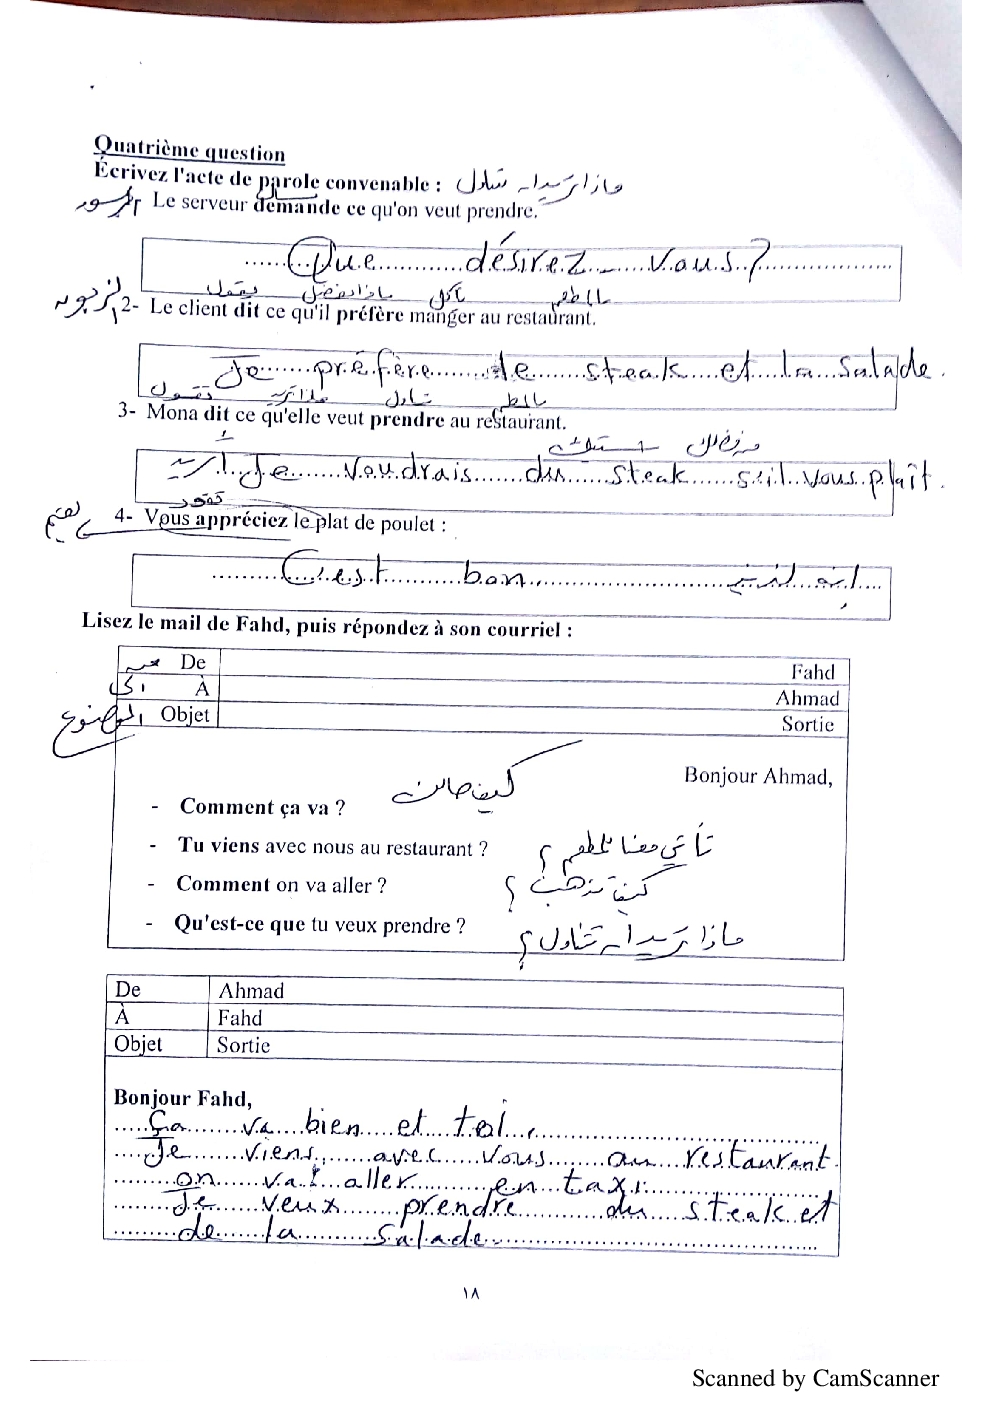 Quatrième question
Écrivez l'acte de parole convenable : ماذا تريد ان تتناول
Le serveur demande ce qu'on veut prendre.
Que désirez-vous?
يقول ماذا يفضل تأكل بالمطعم
2- Le client dit ce qu'il préfère manger au restaurant.
الزبون
Je préfère le steak et la salade.
تقول ماذا تريد تتناول بالمطعم
3- Mona dit ce qu'elle veut prendre au restaurant.
أريد ستيك من فضلك
Je voudrais du steak s'il vous plaît.
4- Vous appréciez le plat de poulet :
C'est bon. إنه لذيذ
Lisez le mail de Fahd, puis répondez à son courriel :
من De Fahd
إلى À Ahmad
الموضوع Objet Sortie
Bonjour Ahmad,
- Comment ça va ? كيف حالك
- Tu viens avec nous au restaurant ? تأتي معنا للمطعم ؟
- Comment on va aller ? كيف نذهب ؟
- Qu'est-ce que tu veux prendre ? ماذا تريد ان تتناول ؟
De Ahmad
À Fahd
Objet Sortie
Bonjour Fahd,
Ça va bien et toi,
Je viens avec vous au restaurant.
on va aller en taxi.
Je veux prendre du steak et
de la salade.
١٨
Scanned by CamScanner